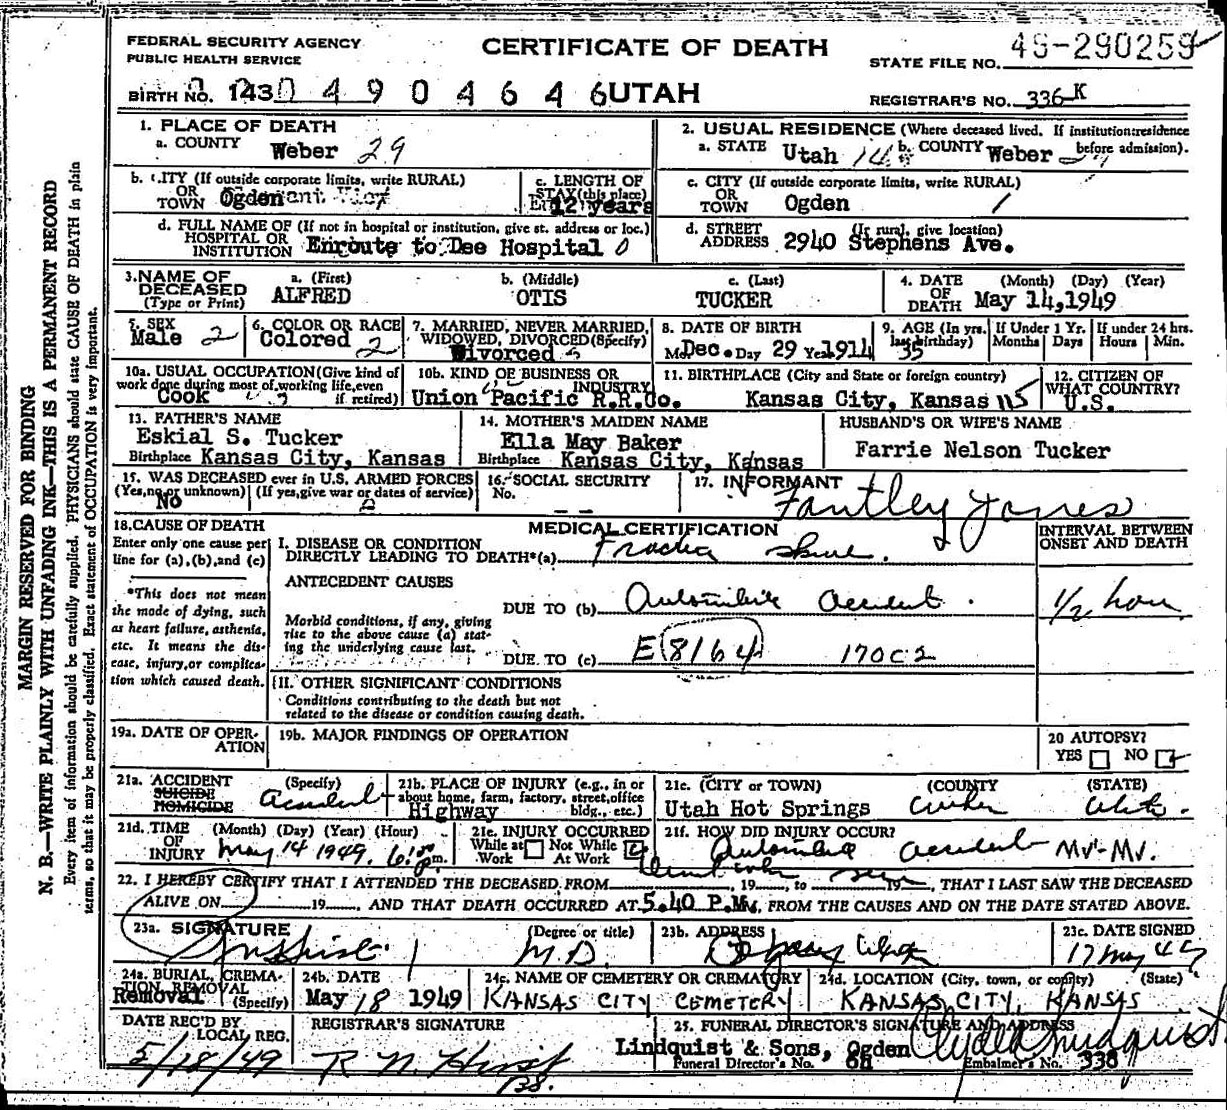 FEDERAL SECURITY AGENCY
PUBLIC HEALTH SERVICE
CERTIFICATE OF DEATH
STATE FILE NO. 49-290259
BIRTH NO. 143 0 4 9 0 4 6 4 6 UTAH
REGISTRAR'S NO. 336-K
1. PLACE OF DEATH
a. COUNTY Weber 29
2. USUAL RESIDENCE (Where deceased lived. If institution:residence before admission).
a. STATE Utah b. COUNTY Weber
b. CITY (If outside corporate limits, write RURAL) OR TOWN Ogden
c. LENGTH OF STAY (this place) 12 years
c. CITY (If outside corporate limits, write RURAL) OR TOWN Ogden 1
d. FULL NAME OF (If not in hospital or institution, give st. address or loc.) HOSPITAL OR INSTITUTION Enroute to Dee Hospital 0
d. STREET ADDRESS (If rural, give location) 2940 Stephens Ave.
3. NAME OF DECEASED (Type or Print)
a. (First) ALFRED
b. (Middle) OTIS
c. (Last) TUCKER
4. DATE OF DEATH (Month) (Day) (Year) May 14,1949
5. SEX Male 2
6. COLOR OR RACE Colored 2
7. MARRIED, NEVER MARRIED, WIDOWED, DIVORCED (Specify) Divorced
8. DATE OF BIRTH Mo. Dec. Day 29 Year 1914
9. AGE (In yrs. last birthday) 35
If Under 1 Yr. Months Days
If under 24 hrs. Hours Min.
10a. USUAL OCCUPATION (Give kind of work done during most of working life, even if retired) Cook
10b. KIND OF BUSINESS OR INDUSTRY Union Pacific R.R.Co.
11. BIRTHPLACE (City and State or foreign country) Kansas City, Kansas
12. CITIZEN OF WHAT COUNTRY? U.S.
13. FATHER'S NAME
Eskial S. Tucker
Birthplace Kansas City, Kansas
14. MOTHER'S MAIDEN NAME
Ella May Baker
Birthplace Kansas City, Kansas
HUSBAND'S OR WIFE'S NAME
Farrie Nelson Tucker
15. WAS DECEASED ever in U.S. ARMED FORCES
(Yes, no or unknown) (If yes, give war or dates of service)
No
16. SOCIAL SECURITY No. --
17. INFORMANT
Fantley Jones
18. CAUSE OF DEATH
Enter only one cause per line for (a), (b), and (c)
*This does not mean the mode of dying, such as heart failure, asthenia, etc. It means the disease, injury, or complication which caused death.
MEDICAL CERTIFICATION
INTERVAL BETWEEN ONSET AND DEATH
I. DISEASE OR CONDITION
DIRECTLY LEADING TO DEATH*(a)
ANTECEDENT CAUSES
DUE TO (b) Automobile accident.
1/2 hour
Morbid conditions, if any, giving rise to the above cause (a) stating the underlying cause last.
DUE TO (c) E 8164
II. OTHER SIGNIFICANT CONDITIONS
Conditions contributing to the death but not related to the disease or condition causing death.
19a. DATE OF OPERATION
19b. MAJOR FINDINGS OF OPERATION
20 AUTOPSY?
YES NO
21a. ACCIDENT SUICIDE HOMICIDE (Specify) accident
21b. PLACE OF INJURY (e.g., in or about home, farm, factory, street, office bldg., etc.) Highway
21c. (CITY or TOWN) (COUNTY (STATE)
Utah Hot Springs Weber Utah.
21d. TIME OF INJURY (Month) (Day) (Year) (Hour) May 14 1949. m.
21e. INJURY OCCURRED
While at Work Not While At Work
21f. HOW DID INJURY OCCUR?
Automobile accident MV-MV.
22. I HEREBY CERTIFY THAT I ATTENDED THE DECEASED FROM , 19 , to 19 , THAT I LAST SAW THE DECEASED
ALIVE ON 19 , AND THAT DEATH OCCURRED AT 5.40 P.M., FROM THE CAUSES AND ON THE DATE STATED ABOVE.
23a. SIGNATURE (Degree or title) M.D.
23b. ADDRESS Ogden, Utah
23c. DATE SIGNED 17 May 49
24a. BURIAL, CREMATION, REMOVAL (Specify) Removal
24b. DATE May 18 1949
24c. NAME OF CEMETERY OR CREMATORY KANSAS CITY CEMETERY
24d. LOCATION (City, town, or county) (State) KANSAS CITY, KANSAS
DATE REC'D BY LOCAL REG. 5/18/49
REGISTRAR'S SIGNATURE
25. FUNERAL DIRECTOR'S SIGNATURE AND ADDRESS
Lindquist & Sons, Ogden Clyde Lindquist
Funeral Director's No. Embalmer's No. 338
MARGIN RESERVED FOR BINDING
N. B.—WRITE PLAINLY WITH UNFADING INK—THIS IS A PERMANENT RECORD
Every item of information should be carefully supplied. PHYSICIANS should state CAUSE OF DEATH in plain
terms, so that it may be properly classified. Exact statement of OCCUPATION is very important.